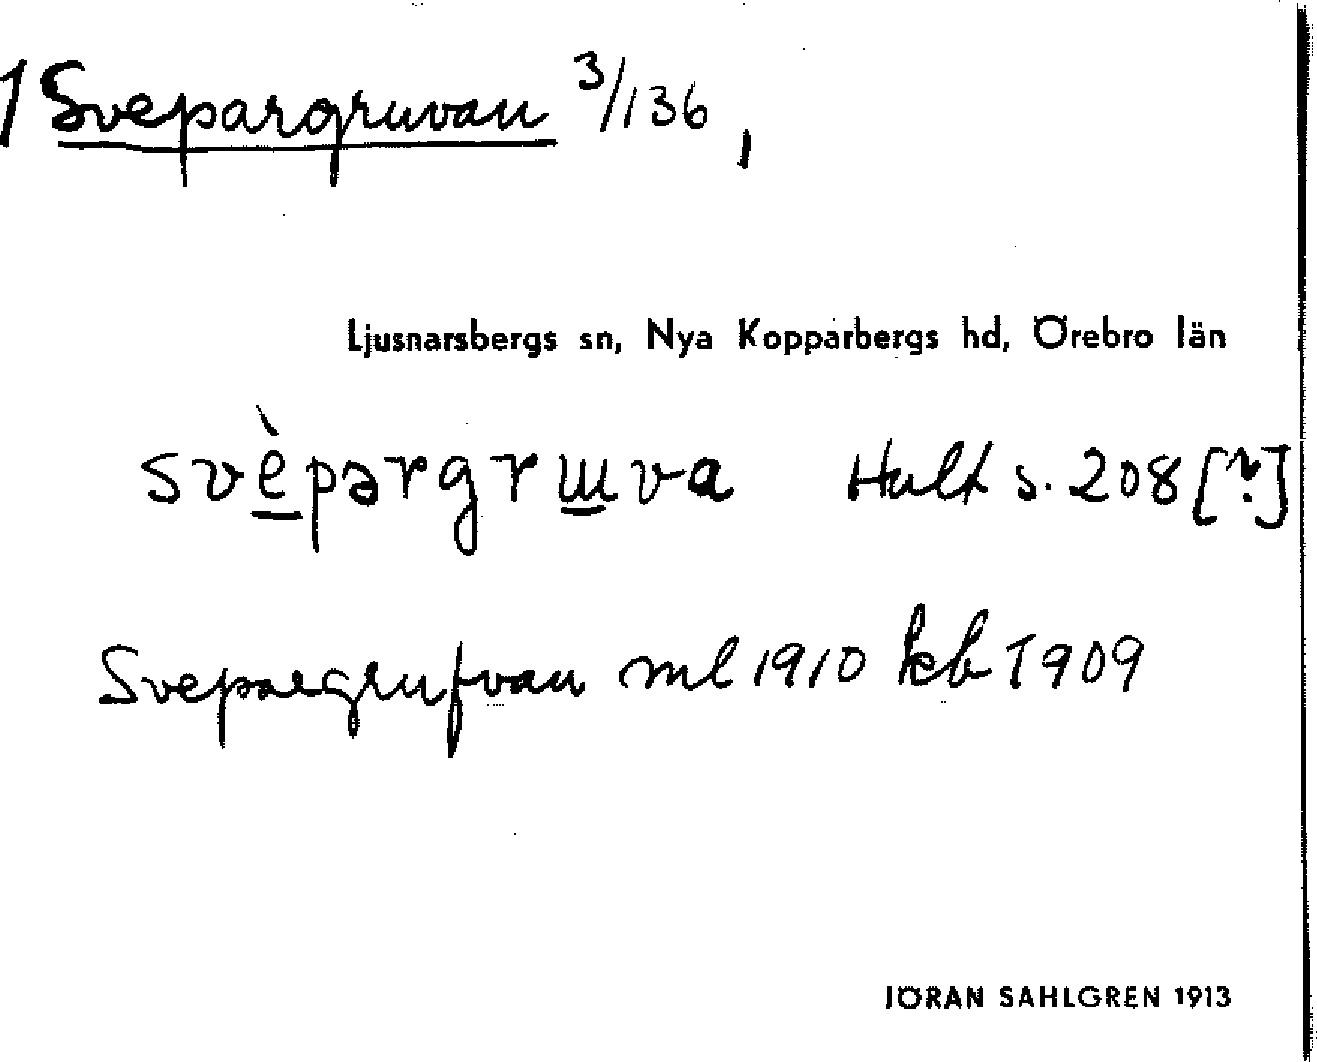 1 Svepargruvan 3/136,
Ljusnarsbergs sn, Nya Kopparbergs hd, Örebro län
svèpərgrɯva Hult s. 208 [?]
Svepargrufvan ml 1910 kb 1909
JÖRAN SAHLGREN 1913